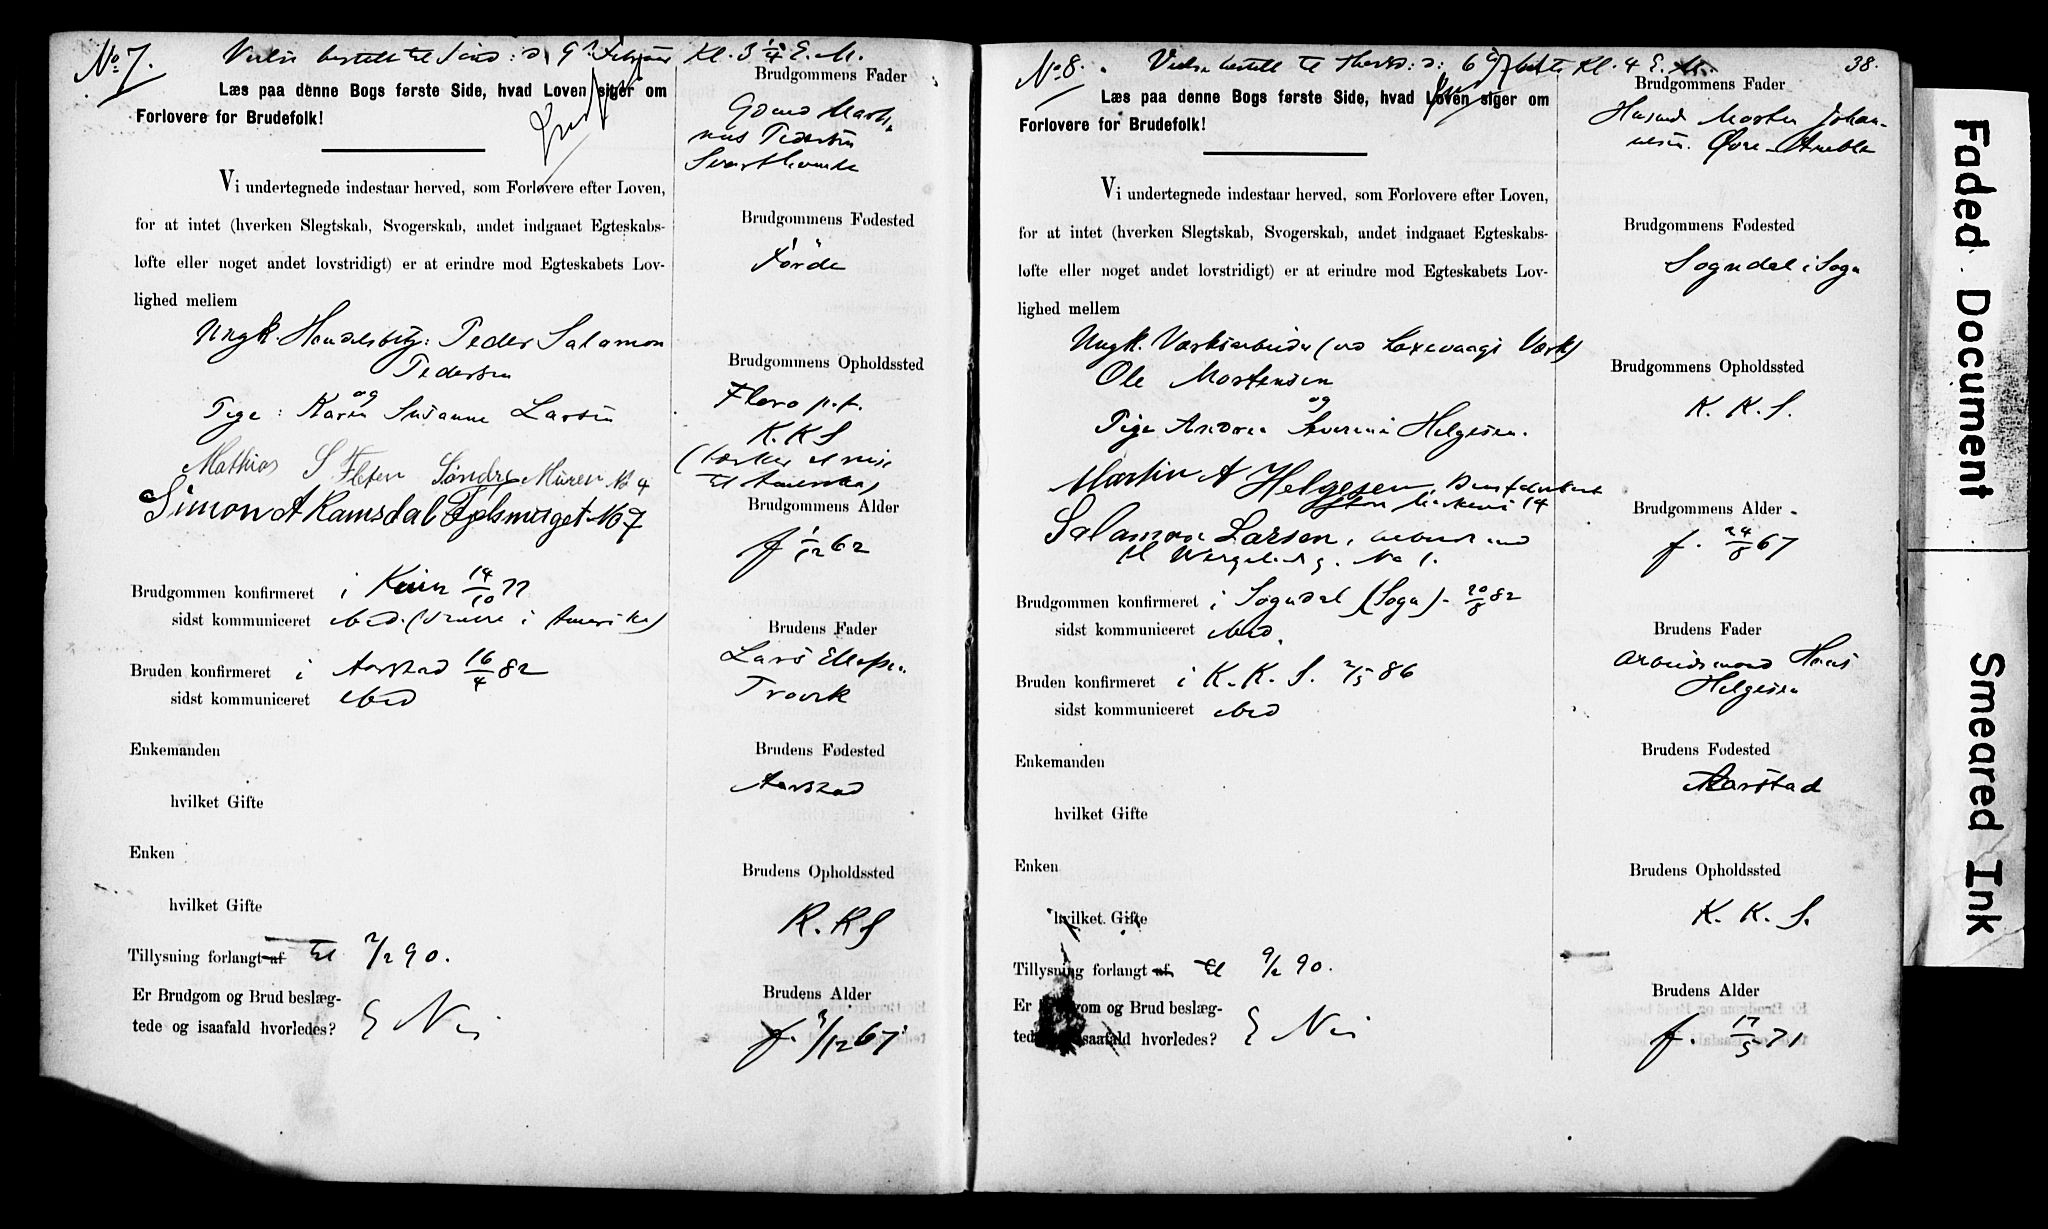 No 7. bestilt til 9 Februar Kl. 3 1/4 E. M.
Læs paa denne Bogs første Side, hvad Loven siger om
Forlovere for Brudefolk!
Vi undertegnede indestaar herved, som Forlovere efter Loven,
for at intet (hverken Slegtskab, Svogerskab, andet indgaaet Egteskabs-
løfte eller noget andet lovstridigt) er at erindre mod Egteskabets Lov-
lighed mellem
Ungk. Peder Salamon
Pedersen
og
Pige: Karen Susanne Larsen
Mathias S Fleten Søndre Muren No 4
Simon A Ramsdal No 7
Brudgommen konfirmeret i Kinn 14/10 77
sidst kommuniceret ibid. i Amerika)
Bruden konfirmeret i Aarstad 16/4 82
sidst kommuniceret ibid
Enkemanden
hvilket Gifte
Enken
hvilket Gifte
Tillysning forlangt af til 2/2 90.
Er Brudgom og Brud beslæg-
tede og isaafald hvorledes? Nei
Brudgommens Fader
Gdmd Marti-
nus Pedersen
Brudgommens Fødested
Førde
Brudgommens Opholdssted
Florø p. t.
K. K. S
(tænker at reise
til Amerika)
Brudgommens Alder
f 1/12 62
Brudens Fader
Lars
Brudens Fødested
Aarstad
Brudens Opholdssted
K. K S
Brudens Alder
f. 3/12 67
No 8. bestilt til 6 Kl. 4 E. M.
38.
Læs paa denne Bogs første Side, hvad Loven siger om
Forlovere for Brudefolk!
Vi undertegnede indestaar herved, som Forlovere efter Loven,
for at intet (hverken Slegtskab, Svogerskab, andet indgaaet Egteskabs-
løfte eller noget andet lovstridigt) er at erindre mod Egteskabets Lov-
lighed mellem
Ungk. Værksarbeider (ved Laxevaags Værk)
Ole Mortensen
og
Pige Andrea Severine Helgesen.
Martin A Helgesen 14
Salamon Larsen, arbeidsmand
No 1.
Brudgommen konfirmeret i Sogndal (Sogn) 20/8 82
sidst kommuniceret ibid.
Bruden konfirmeret i K. K. S. 2/5 86
sidst kommuniceret ibid
Enkemanden
hvilket Gifte
Enken
hvilket Gifte
Tillysning forlangt af til 9/2 90.
Er Brudgom og Brud beslæg-
tede og isaafald hvorledes? Nei
Brudgommens Fader
Husmd Morten Johan-
nesen. Øvre-Amble
Brudgommens Fødested
Sogndal i Sogn
Brudgommens Opholdssted
K. K. S.
Brudgommens Alder
f. 24/8 67
Brudens Fader
Arbeidsmand Hans
Helgesen
Brudens Fødested
Aarstad
Brudens Opholdssted
K. K. S.
Brudens Alder
f. 17/5 71
Faded Document
Smeared Ink